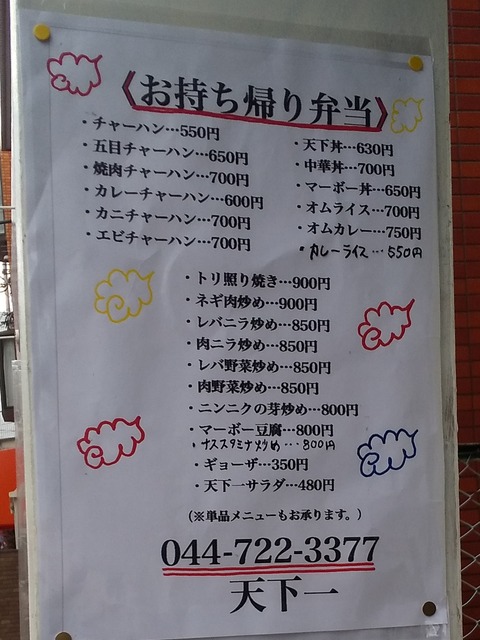 《お持ち帰り弁当》
・チャーハン…550円
・五目チャーハン…650円
・焼肉チャーハン…700円
・カレーチャーハン…600円
・カニチャーハン…700円
・エビチャーハン…700円
・天下丼…630円
・中華丼…700円
・マーボー丼…650円
・オムライス…700円
・オムカレー…750円
・カレーライス…550円
・トリ照り焼き…900円
・ネギ肉炒め…900円
・レバニラ炒め…850円
・肉ニラ炒め…850円
・レバ野菜炒め…850円
・肉野菜炒め…850円
・ニンニクの芽炒め…800円
・マーボー豆腐…800円
・ナススタミナ炒め…800円
・ギョーザ…350円
・天下一サラダ…480円
(※単品メニューもお承ります。)
044-722-3377
天下一